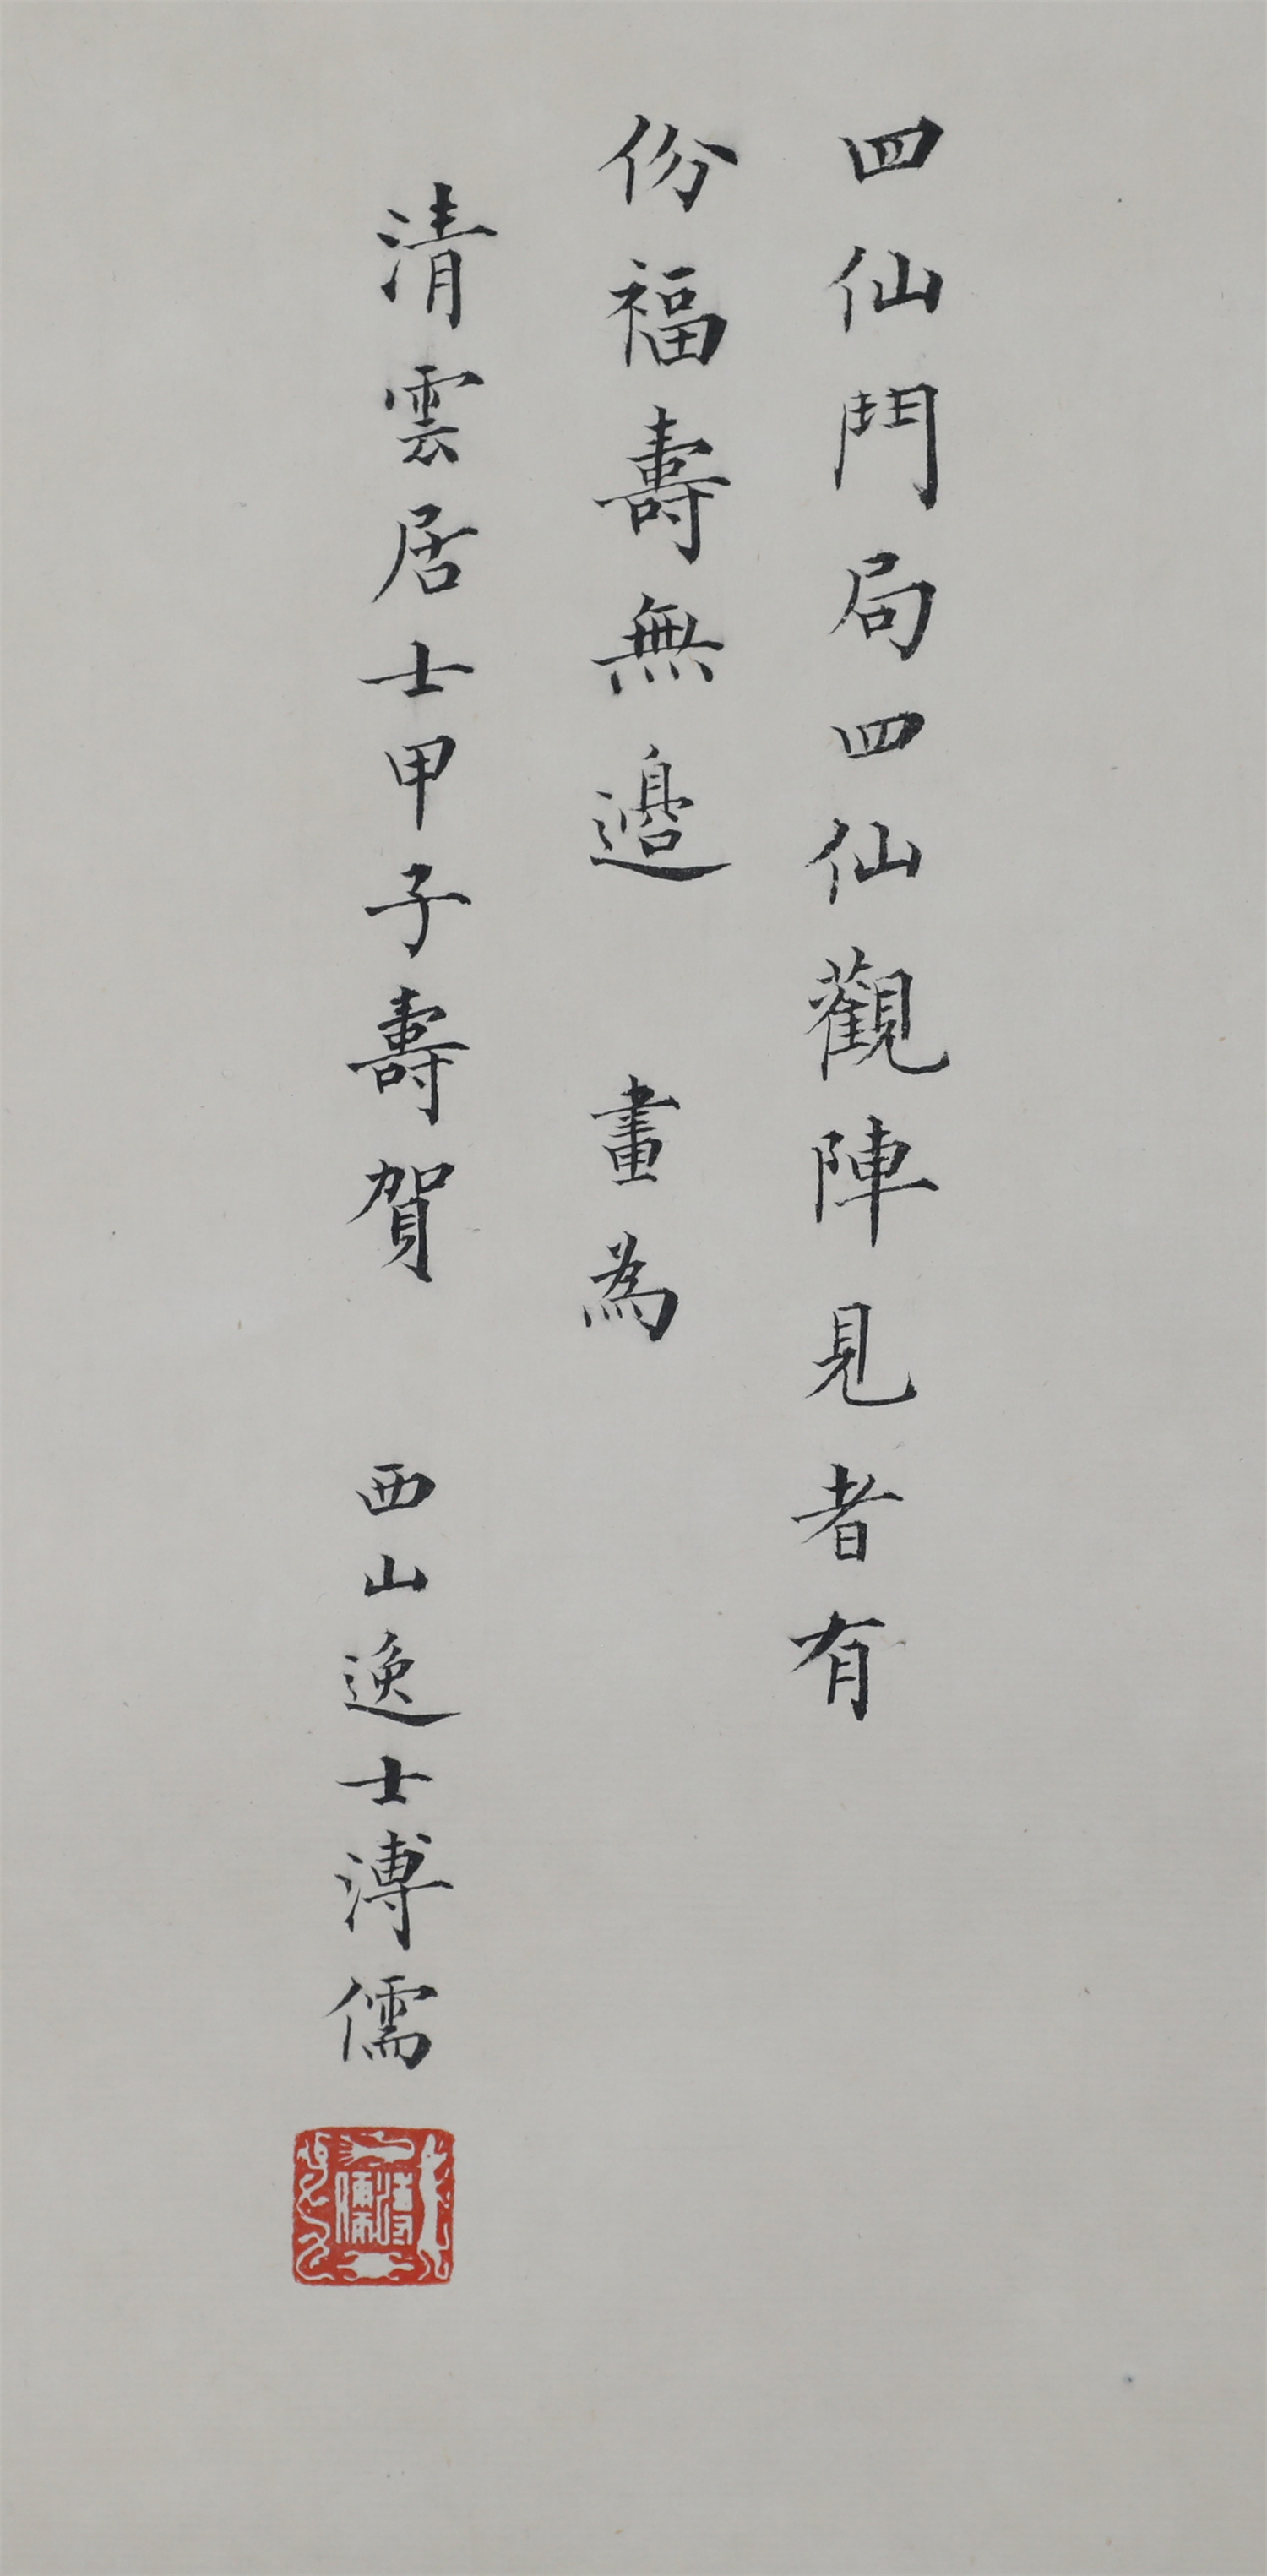 四仙鬥局四仙觀陣見者有
份福壽無邊 畫為
清雲居士甲子壽賀 西山逸士溥儒
溥儒